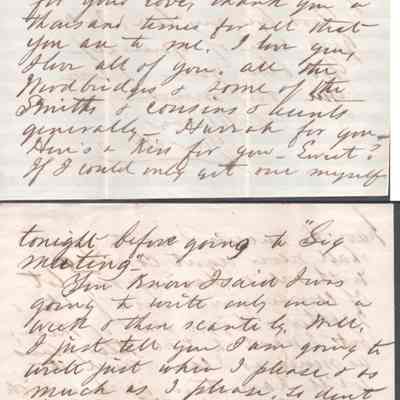 for your love, thank you a
thousand times for all that
you are to me. I love you,
I love all of you. all the
Woodbridges & some of the
Smiths & cousins & aunts
generally - Hurrah for you -
Here's a kiss for you - Sweet?
If I could only get one myself
tonight before going to "Sig
meeting".
You know I said I was
going to write only once a
week & then scantily. Well,
I just tell you I am going to
write just when I please & as
much as I please, so don't